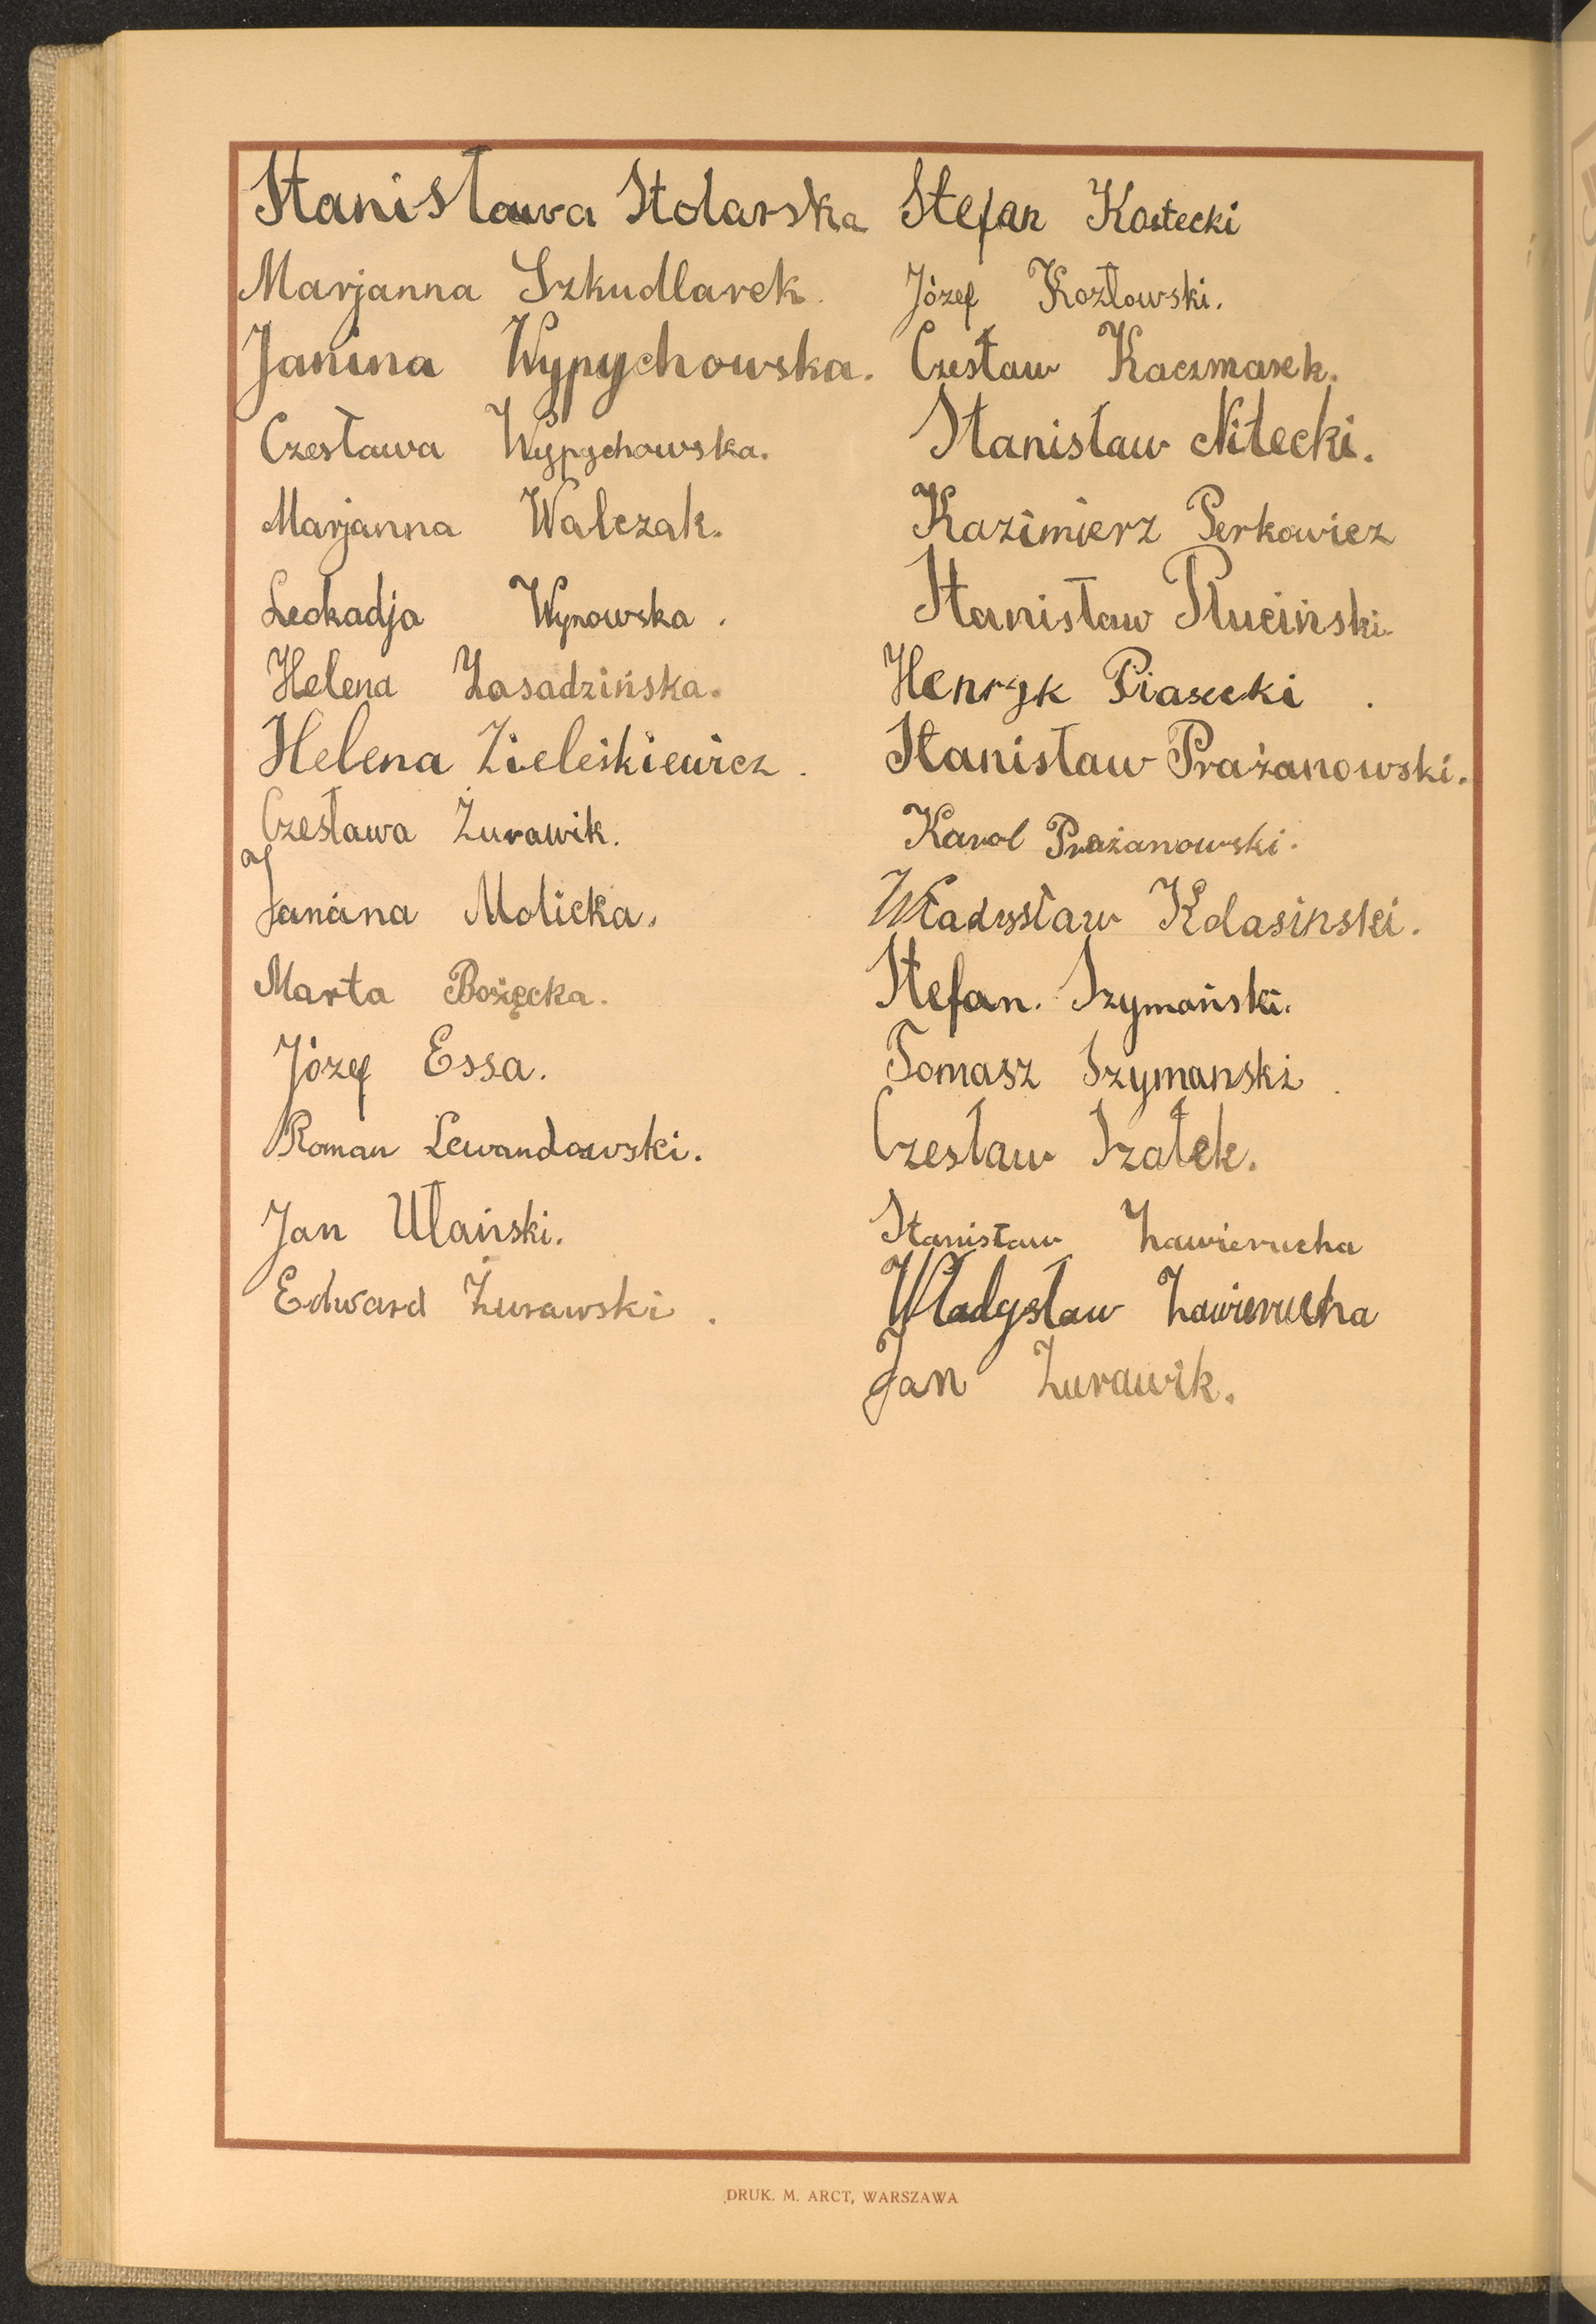 Stanisława Stolarska
Marjanna Szkudlarek.
Janina Wypychowska.
Czesława Wypychowska.
Marjanna Walczak.
Leokadja Wynowska.
Helena Zasadzińska.
Helena Zieleśkiewicz.
Czesława Żurawik.
Janina Molicka.
Marta Bożęcka.
Józef Essa.
Roman Lewandowski.
Jan Ułański.
Edward Żurawski.
Stefan Kostecki
Józef Kozłowski.
Czesław Kaczmarek.
Stanisław Nitecki.
Kazimierz Perkowicz
Stanisław Pluciński.
Henryk Piasecki.
Stanisław Prażanowski.
Karol Prażanowski.
Władysław Kolasinski.
Stefan. Szymański.
Tomasz Szymanski.
Czesław Szałek.
Stanisław Zawierucha
Władysław Zawierucha
Jan Żurawik.
DRUK. M. ARCT, WARSZAWA